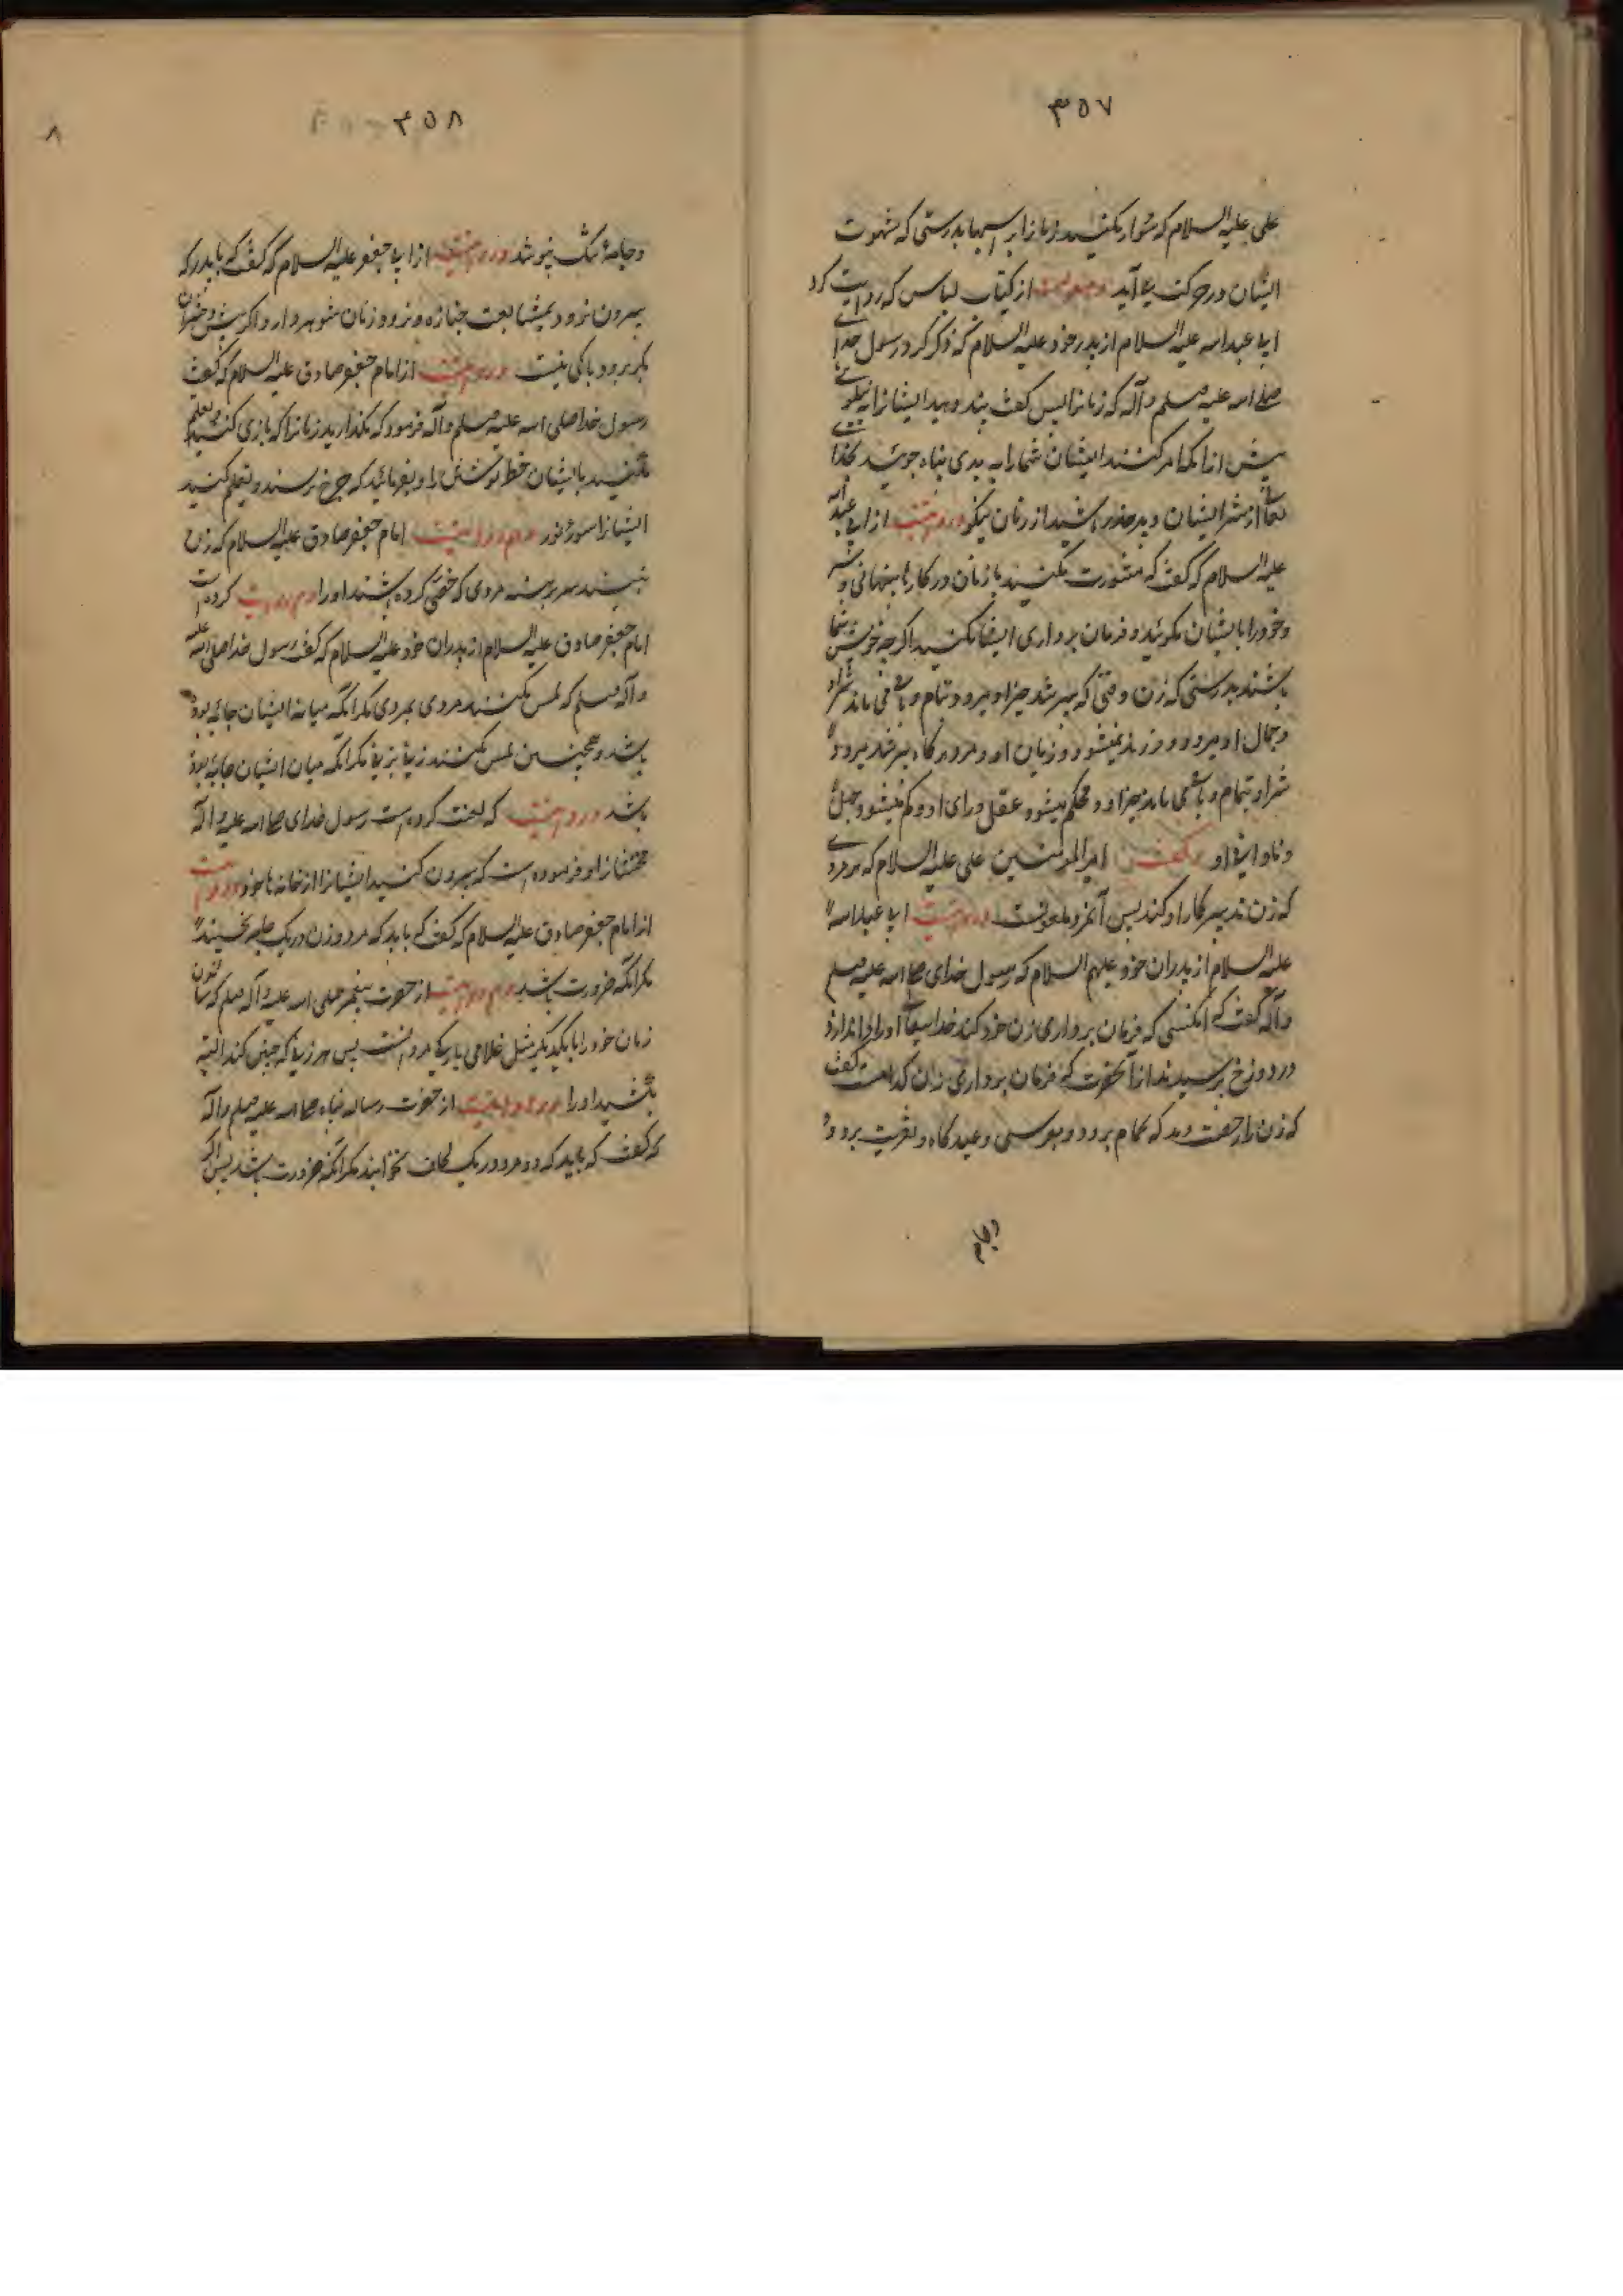 ۳۵۷
علی علیه السلام که سوار مکنید زنانرا بر اسبها بدرستی که شهوت
ایشان در حرکت می آید از کتاب لباس که روایت کرد
ابی عبداسه علیه السلام از پدر خود علیه السلام که ذکر کرد رسول خدای
صلی اسه علیه وسلم وآله که زنانرا پس گفت پند وهید ایشانرا به نیکوئی
پیش از آنکه امر کنند ایشان شمارا به بدی پناه جوئید بخدای
تعالی از شر ایشان و بر حذر باشید از زنان نیکو و مرویست از ابی عبداسه
علیه السلام که گفت که مشورت مکنید با زنان در کارهای پنهانی و سر
و خود را بایشان مکوئید و فرمان برداری ایشان مکنید اکرچه خویش شما
باشند بدرستی که زن وقتی که پیر شد خیر او میرود تمام و باقی می ماند شر او
و جمال او میرود و فرزند نمیشود و زبان او و مرد هر کاه پیر شد میرود
شر او بتمام و باقی ماند خیر او و محکم میشود عقل و رای او و کم میشود جهل
و نادانی او و گفت امیر المومنین علی علیه السلام که هر مردی
که زن تدبیر کار او کند پس آنمرد ملعونست و مرویست ابی عبداسه
علیه السلام از پدران خود علیهم السلام که رسول خدای صلی اسه علیه وسلم
وآله گفت که آنکسی که فرمان برداری زن خود کند خدایتعالی اورا اندازد
در دوزخ پرسیدند از آنحضرت که فرمان برداری زنان کدامست گفت
که زن را رخصت دهد که بحمام برود و بعروسی و عیدگاه و بتعزیت برود و
وجام
۳۵۸
۸
وجامهٔ تنک بپوشد و مرویست از ابی جعفر علیه السلام که گفت که باید که
بیرون نرود بمشایعت جنازه و نرود زنان شوهردار و اکر پیش دختران
بکر برود باکی نیست و مرویست از امام جعفر صادق علیه السلام که گفت
رسول خدا صلی اسه علیه وسلم وآله فرمود که مکذارید زنانرا که بازی کنند و تعلیم
مکنید بایشان خط نوشتن را و بفرمائید که چرخ برسند و تعلیم کنید
ایشانرا سورهٔ نور و هم مرویست امام جعفر صادق علیه السلام که زن
نبیند سر برهنه مردی که خصی کرده باشند اورا و هم روایت کرده است
امام جعفر صادق علیه السلام از پدران خود علیه السلام که گفت رسول خدا صلی اسه علیه
وآله وسلم که لمس مکنند مردی بمردی مکر آنکه میانه ایشان جامه بوده
باشد و همچنین لمس نکنند زنی بزنی مکر آنکه میان ایشان جامه بوده
باشد و مرویست که لعنت کرده است رسول خدای صلی اسه علیه وآله
مخنثانرا و فرموده است که بیرون کنید ایشانرا از خانه ها خود و مرویست
از امام جعفر صادق علیه السلام که گفت که باید که مرد و زن در یک جامه نخسبند
مکر آنکه ضرورت باشد و هم مرویست از حضرت پیغمبر صلی اسه علیه وآله وسلم که
زنان خود را بایکدیکر مثل غلامی یا مرد است پس هر زنی که چنین کند البته
بکشید اورا و مرویست از حضرت رسالت پناه صلی اسه علیه وسلم وآله
که گفت که باید که دو مرد در یک لحاف نخوابند مکر آنکه ضرورت باشد پس اکر